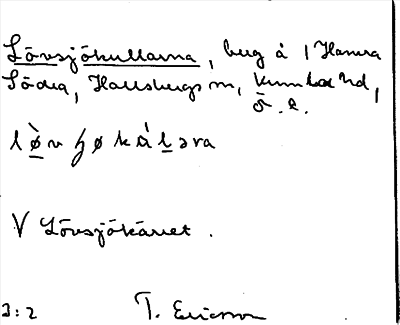 Lövsjökullarna, berg å 1 Hamra
Södra, Hallsbergs sn, Kumla hd,
Ö. L.
lø̀vʃøkálǝra
V Lövsjökärret.
3:2 T. Ericsson